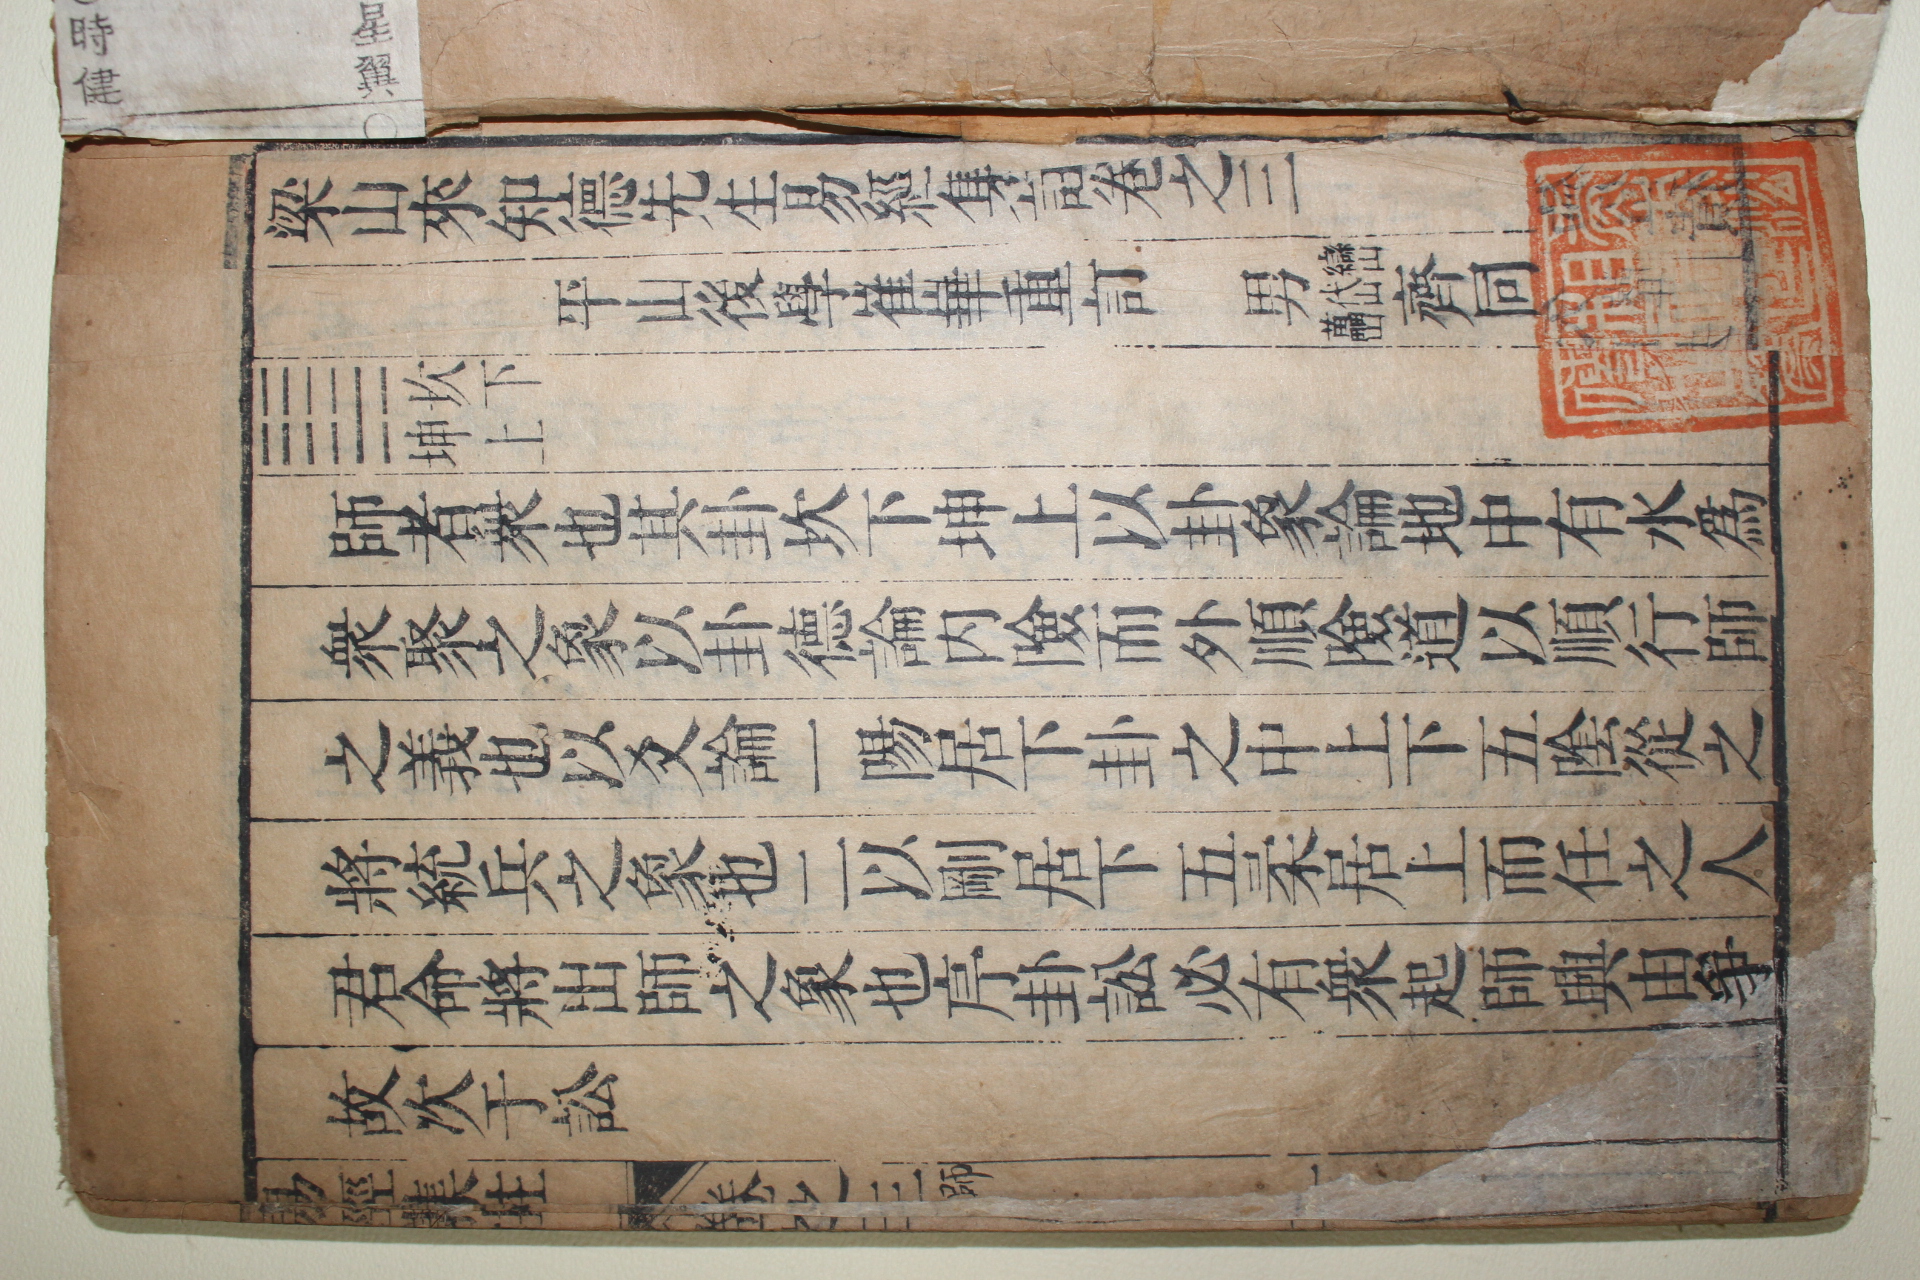 梁山來知德先生易經集註卷之三
平山後學崔華重訂　男　齊同
坎下
坤上
師者衆也其卦坎下坤上以卦象論地中有水爲
衆聚之象以卦德論内險而外順險道以順行師
之義也以爻論一陽居下卦之中上下五陰從之
將統兵之象也二以剛居下五柔居上而任之人
君命將出師之象也序卦訟必有衆起師興由爭
故次于訟
易經集註　卷之三　師　一
星翼○
時健